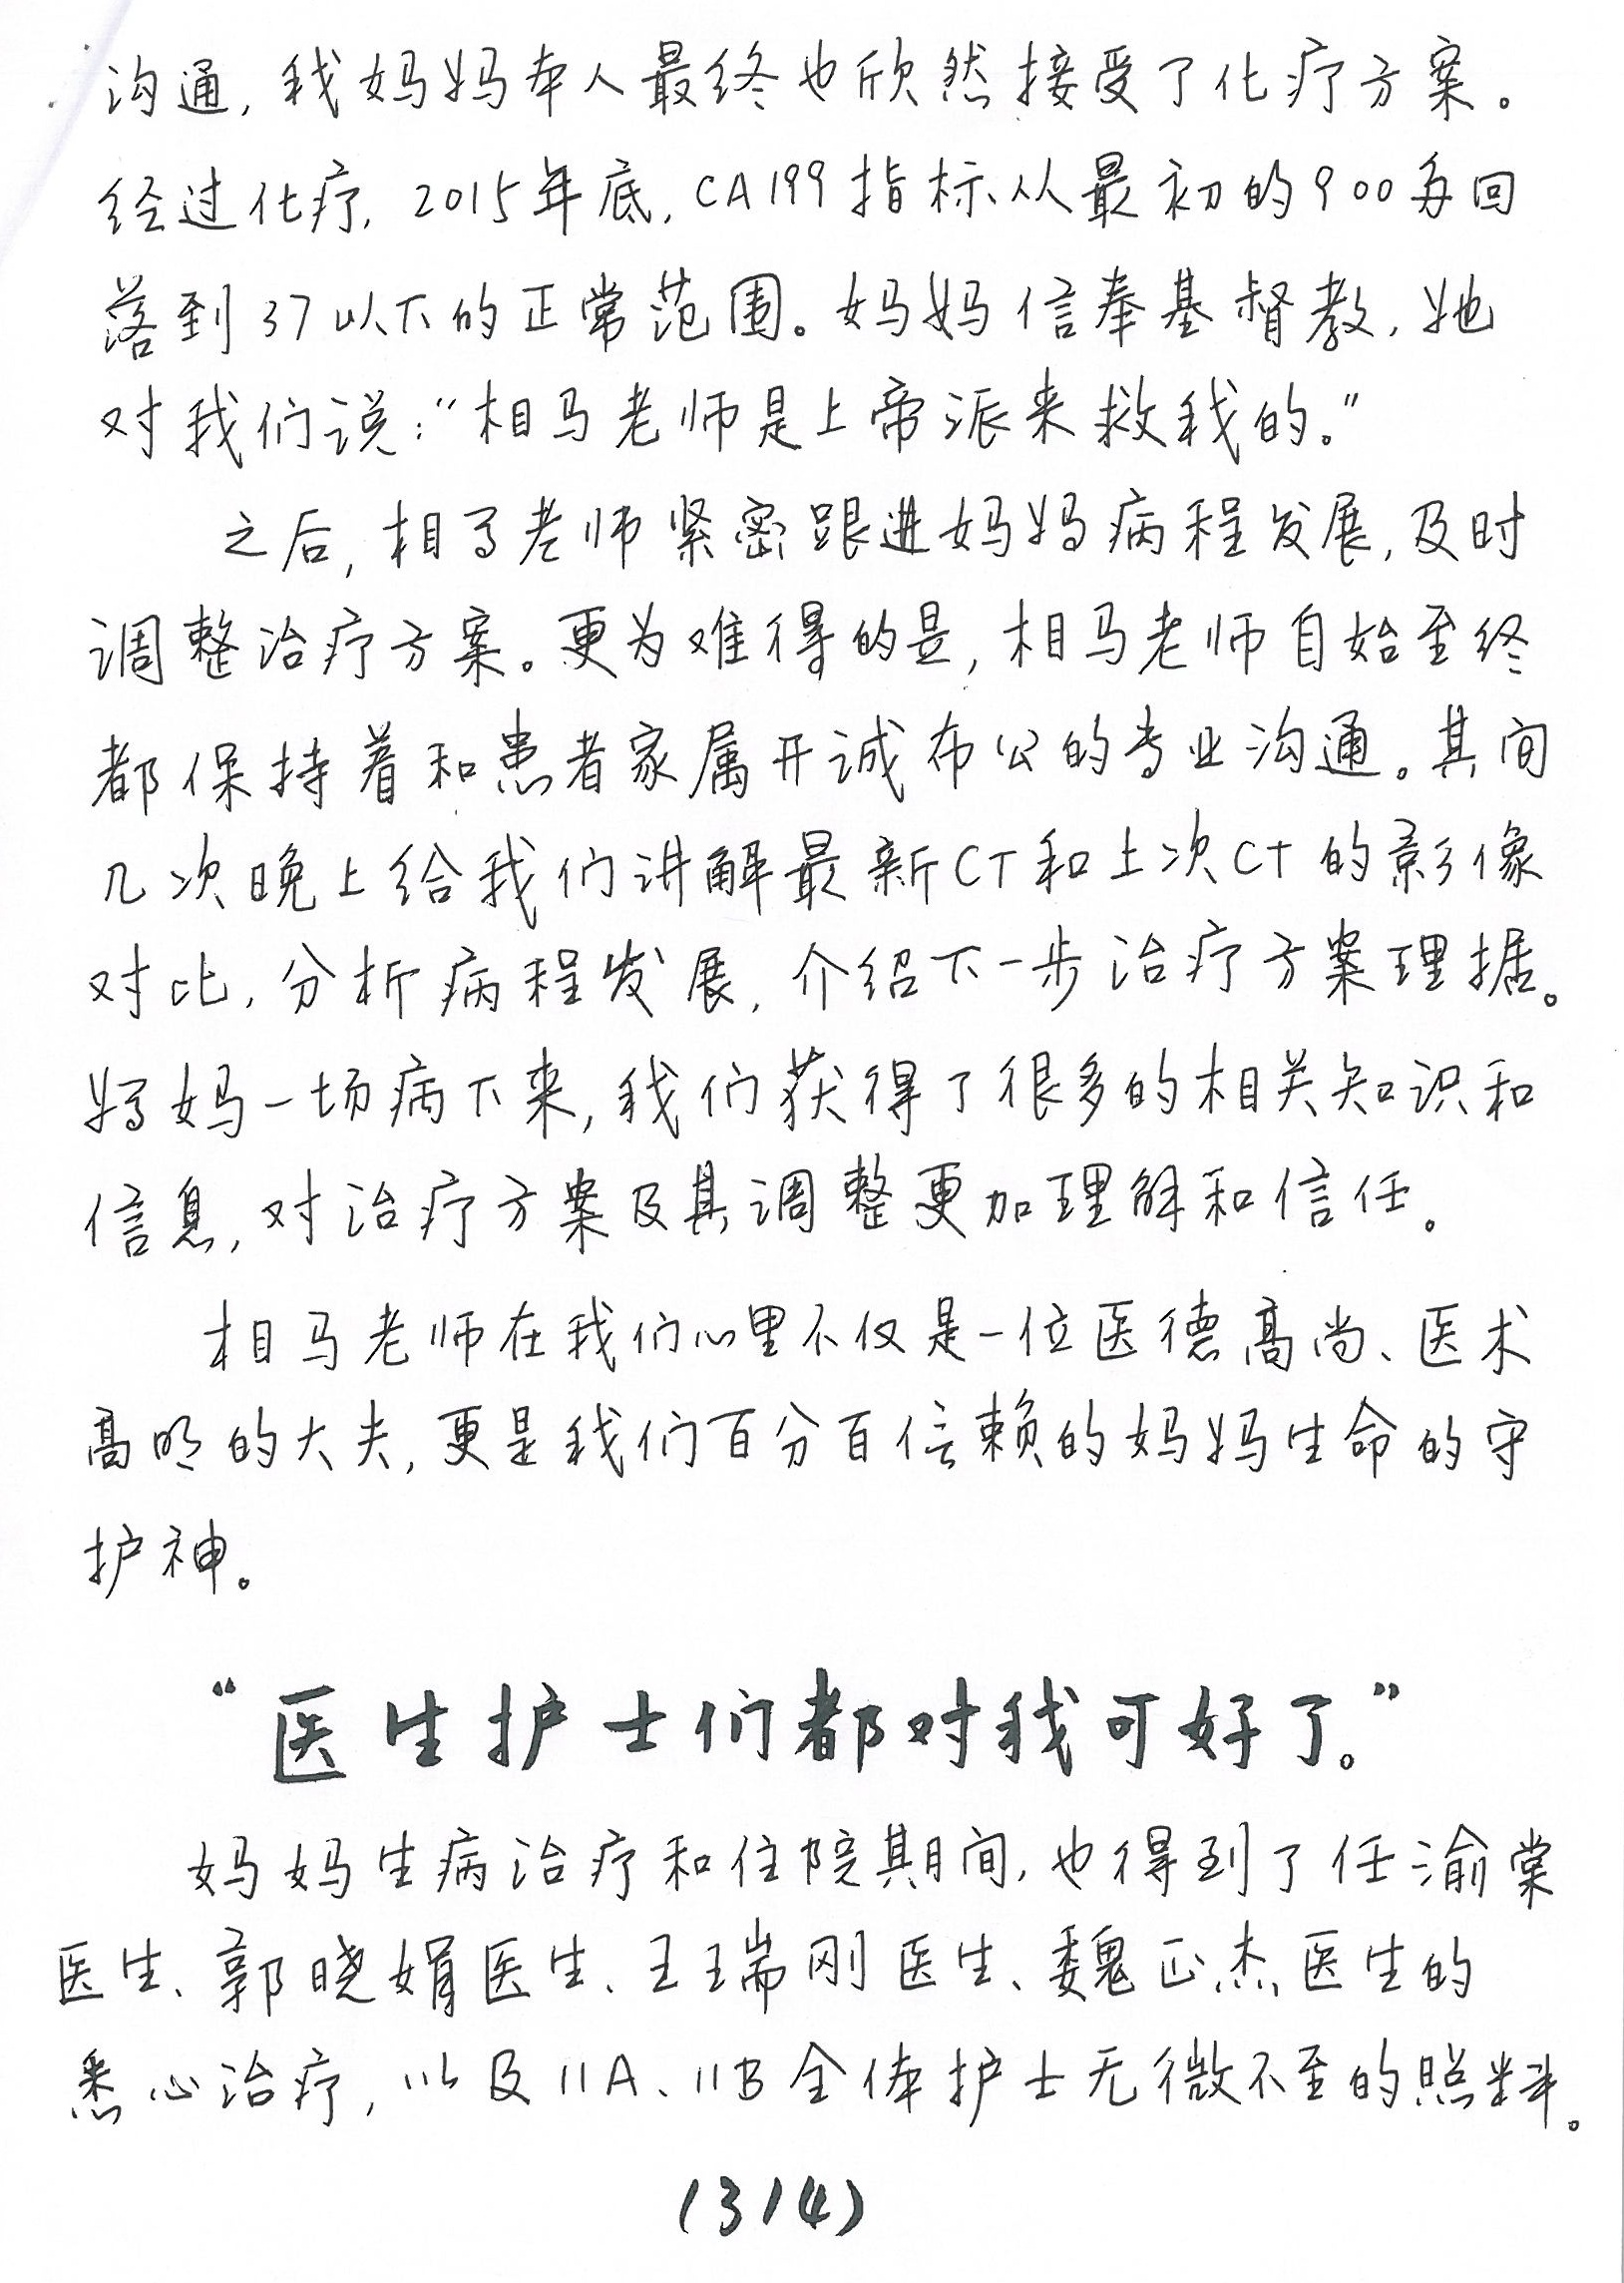 沟通,我妈妈本人最终也欣然接受了化疗方案。
经过化疗,2015年底,CA199指标从最初的900每回
落到37以下的正常范围。妈妈信奉基督教,她
对我们说:“相马老师是上帝派来救我的。”
之后,相马老师紧密跟进妈妈病程发展,及时
调整治疗方案。更为难得的是,相马老师自始至终
都保持着和患者家属开诚布公的专业沟通。其间
几次晚上给我们讲解最新CT和上次CT的影像
对比,分析病程发展,介绍下一步治疗方案理据。
妈妈一场病下来,我们获得了很多的相关知识和
信息,对治疗方案及其调整更加理解和信任。
相马老师在我们心里不仅是一位医德高尚、医术
高明的大夫,更是我们百分百信赖的妈妈生命的守
护神。
“医生护士们都对我可好了。”
妈妈生病治疗和住院期间,也得到了任渝棠
医生、郭晓娟医生、王瑞刚医生、魏正杰医生的
悉心治疗,以及11A、11B全体护士无微不至的照料。
(3/4)